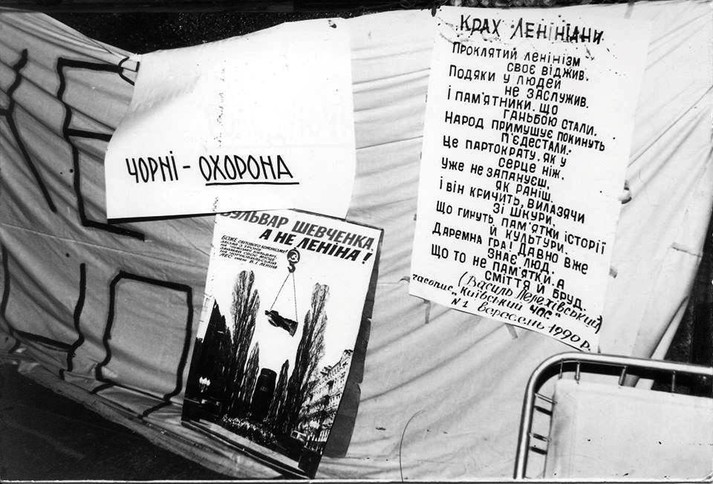 ЧОРНІ - ОХОРОНА
БУЛЬВАР ШЕВЧЕНКА,
А НЕ ЛЕНІНА!
КРАХ ЛЕНІНІАНИ
Проклятий ленінізм
своє віджив.
Подяки у людей
не заслужив.
І пам'ятники, що
ганьбою стали.
Народ примушує покинуть
п'єдестали.
Це партократу, як у
серце ніж.
Уже не запануєш,
як раніш.
І він кричить, вилазячи
зі шкури.
Що гинуть пам'ятки історії
й культури.
Даремна гра! Давно вже
знає люд.
Що то не пам'ятки, а
сміття й бруд.
(Василь
часопис „Київський час"
№1 вересень 1990 р.